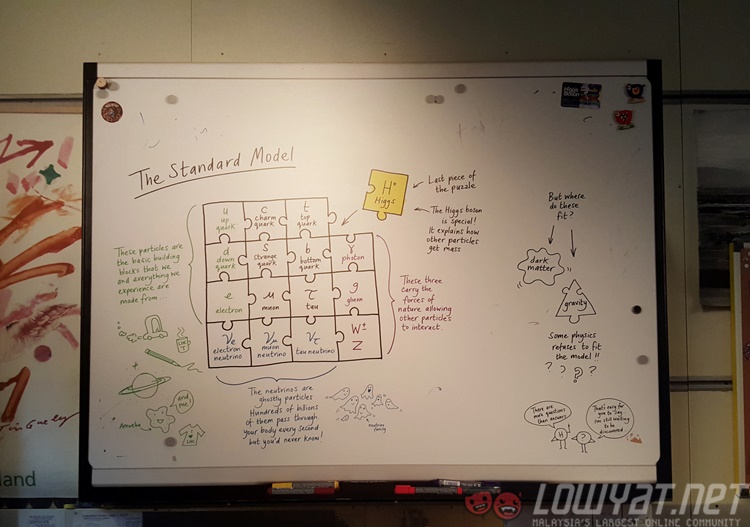 The Standard Model
H°
Higgs
Last piece of
the puzzle
The Higgs boson
is special!
It explains how
other particles
get mass
But where
do these
fit?
dark
matter
gravity
Some physics
refuses to fit
the model!!
? ? ? ?
u
up
quark
c
charm
quark
t
top
quark
d
down
quark
s
strange
quark
b
bottom
quark
γ
photon
e
electron
μ
muon
τ
tau
g
gluon
νe
electron
neutrino
νμ
muon
neutrino
ντ
tau neutrino
W±
Z
These particles are
the basic building
blocks that we
and everything we
experience are
made from...
These three
carry the
forces of
nature allowing
other particles
to interact.
The neutrinos are
ghostly particles
Hundreds of billions
of them pass through
your body every second
but you'd never know!
neutrino
family
and
me
Amoeba
There are
more questions
than answers
That's easy for
you to say
I'm still waiting
to be
discovered
H
?
land
LOWYAT.NET
MALAYSIA'S LARGEST ONLINE COMMUNITY